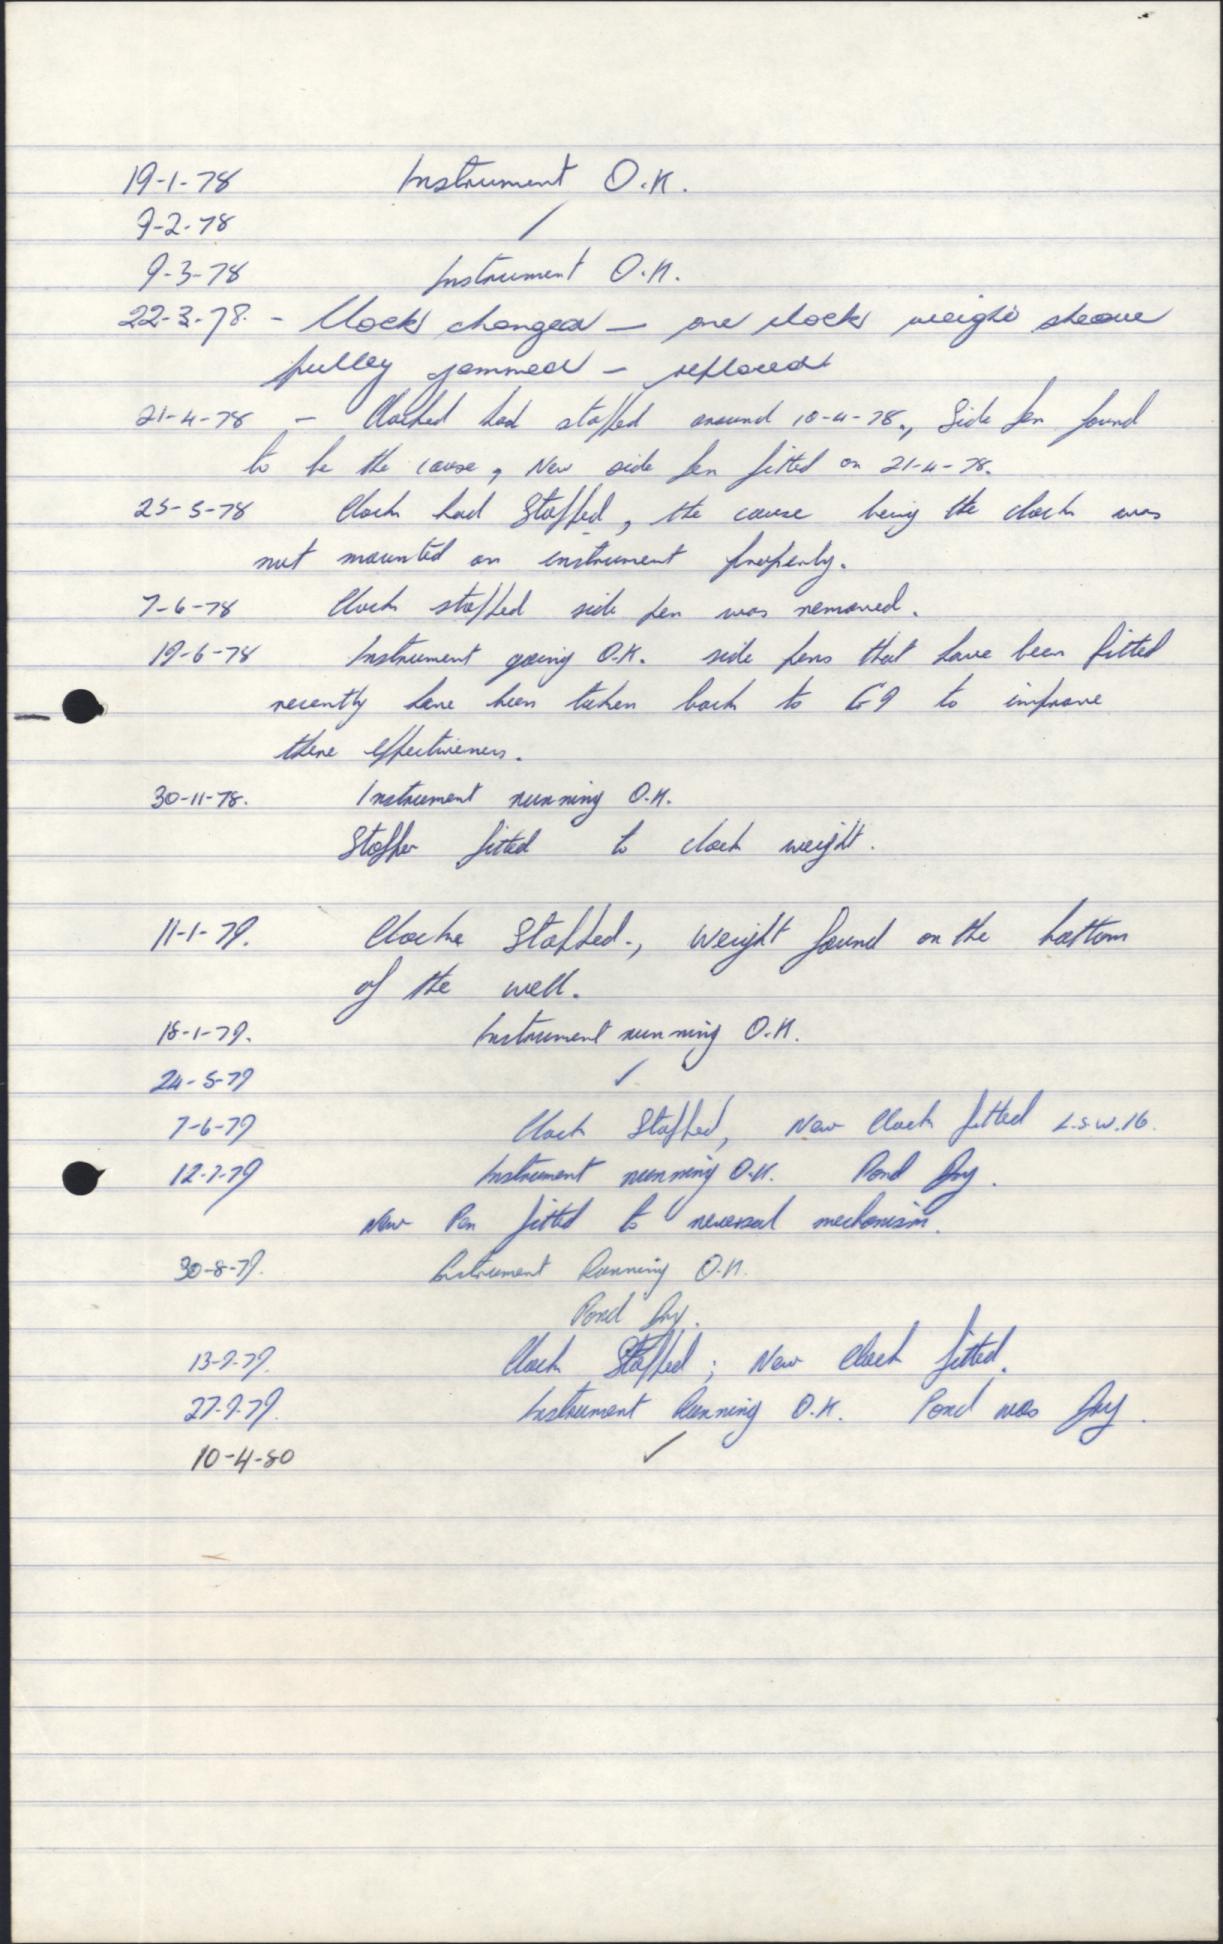 19-1-78 Instrument O.K.
9-2-78 ✓
9-3-78 Instrument O.K.
22-3-78. - Clock changed — one clock weight sheave
pulley jammed — replaced
21-4-78 - Clocked had stopped around 10-4-78., Side pen found
to be the cause, New side pen fitted on 21-4-78.
25-5-78 Clock had Stopped, the cause being the clock was
not mounted on instrument properly.
7-6-78 Clock stopped side pen was removed.
19-6-78 Instrument going O.K. side pens that have been fitted
recently have been taken back to G9 to improve
there effectiveness.
30-11-78. Instrument running O.K.
Stopper fitted to clock weight.
11-1-79. Clocke Stopped., Weight found on the bottom
of the well.
18-1-79. Instrument running O.K.
24-5-79 ✓
7-6-79 Clock Stopped, New Clock fitted L.S.W.16.
12-7-79 Instrument running O.K. Pond Dry.
New Pen fitted to reversal mechanism.
30-8-79. Instrument Running O.K.
Pond Dry.
13-9-79. Clock Stopped; New Clock fitted.
27-9-79. Instrument Running O.K. Pond was Dry.
10-4-80 ✓